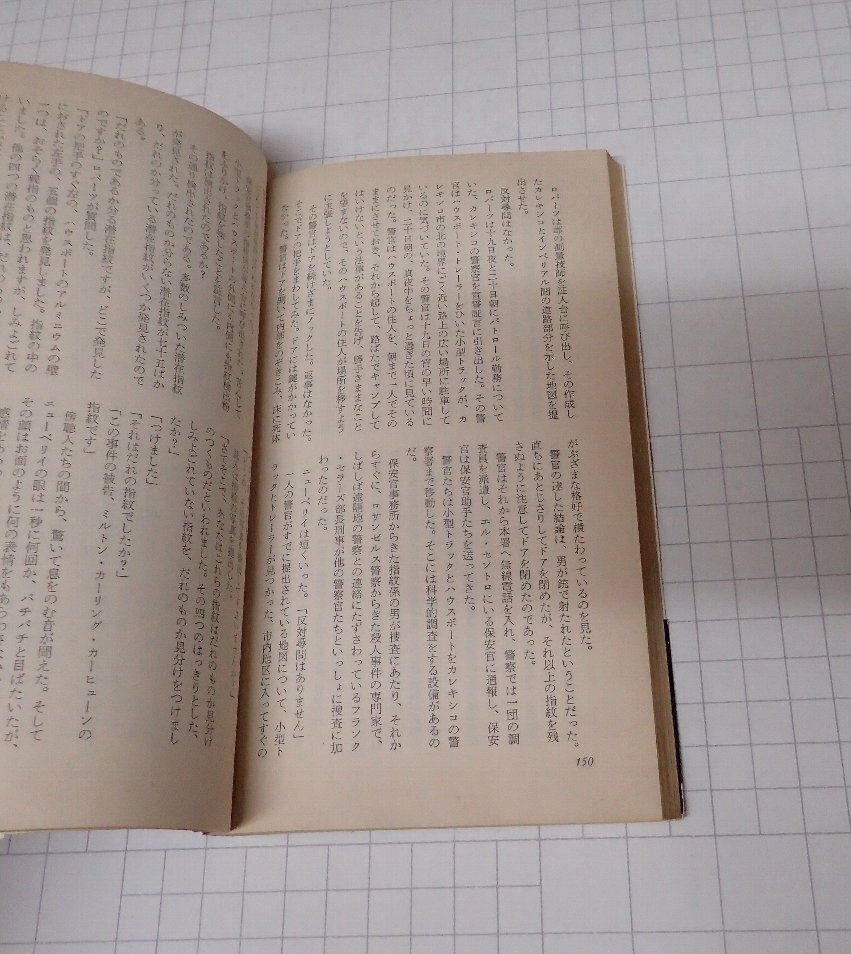 ロバーツは郡の測量技師を証人台に呼び出し、その作成し
たカレキシコとインペリアル間の道路部分を示した地図を提
出させた。
反対尋問はなかった。
ロバーツは十九日夜と二十日朝にパトロール勤務について
いた、カレキシコの警察官を宣誓証言に引き出した。その警
官はハウスボート・トレーラーをひいた小型トラックが、カ
レキシコ市の北の境界にごく近い路上の広い場所に駐車して
いるのに気づいていた。その警官は十九日の宵の早い時間に
見かけ、二十日朝の、真夜中をちょっと過ぎた頃に見ている
のだった。警官はハウスボートの住人を、朝まで一人でその
ままにさせておき、それから起して、路ばたでキャンプして
はいけないという法律があることを告げ、勝手きままなこと
を望まないので、そのハウスボートの住人が場所を移すよう
に主張しようとしていた。
その警官はドアを続けざまにノックした。返事はなかった。
そこでドアの把手をまわしてみた。ドアには鍵がかかってい
なかった。警官はドアを開いて内部をのぞきこみ、床に死体
がぶざまな格好で横たわっているのを見た。
警官の達した結論は、男が銃で射たれたということだった。
直ちにあとじさりしてドアを閉めたが、それ以上の指紋を残
さぬように注意してドアを閉めたのであった。
警官はそれから本署へ無線電話を入れ、警察では一団の調
査員を派遣し、エル・セントロにいる保安官に通報し、保安
官は保安官助手たちを送ってきた。
警官たちは小型トラックとハウスボートをカレキシコの警
察署まで移動した。そこには科学的調査をする設備があるの
だ。
保安官事務所からきた指紋係の男が捜査にあたり、それか
らすぐに、ロサンゼルス警察からきた殺人事件の専門家で、
しばしば遠隔地の警察との連絡にたずさわっているフランク
・セラーズ部長刑事が他の警察官たちといっしょに捜査に加
わったのだった。
ニューベリイは短くいった。「反対尋問はありません」
一人の警官がすでに提出されている地図について、小型ト
ラックとトレーラーが見つかった、市内地区に入ってすぐの
150
指紋は検出されたのであるか?
その通り検出されたのである。多数のしみついた潜在指紋
が発見された。だれのものか分らない潜在指紋が七十五ばか
り、だれのか分っている潜在指紋がいくつか発見されたので
ある。
「だれのものであるか分る潜在指紋ですが、どこで発見した
のですか?」ロバーツが質問した。
「ドアの把手のすぐ左の、ハウスボートのアルミニウムの壁
におされた左手の、五個の指紋を発見しました。指紋の中の
一つは、おそらく親指のものと思われますが、しみよごれて
いました。他の四つの潜在指紋は、
のつくものだといわれました。その四つのはっきりとした、
しみよごれていない指紋を、だれのものか見分けをつけまし
たか?」
「つけました」
「それはだれの指紋でしたか?」
「この事件の被告、ミルトン・カーリング・カーヒューンの
指紋です」
傍聴人たちの間から、驚いて息をのむ音が聞えた。そして
ニューベリイの眼は一秒に何回か、パチパチと目ばたいたが、
その顔はお面のように何の表情をもあらわさな